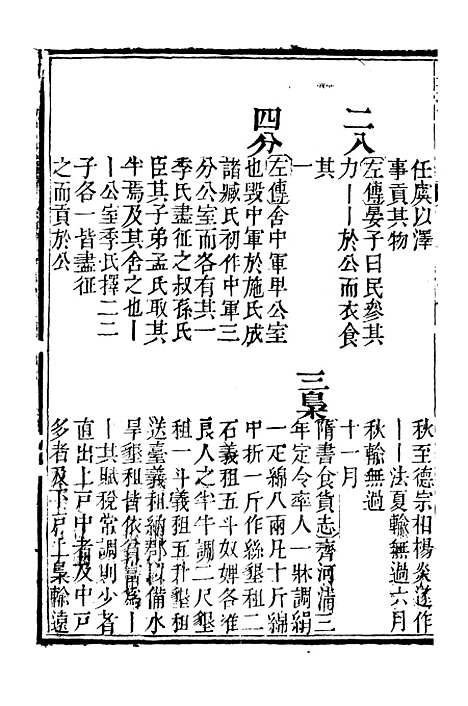 任虞以澤
事貢其物
二入
左傳晏子曰民參其
力｜｜於公而衣食
其
一
四分
左傳舍中軍卑公室
也毀中軍於施氏成
諸臧氏初作中軍三
分公室而各有其一
季氏盡征之叔孫氏
臣其子弟孟氏取其
半焉及其舍之也｜
｜公室季氏擇二二
子各一皆盡征
之而貢於公
秋至德宗相楊炎遂作
｜｜法夏輸無過六月
秋輸無過
十一月
三梟
隋書食貨志齊河清三
年定令率人一牀調絹
一疋綿八兩凡十斤綿
中折一斤作絲墾租二
石義租五斗奴婢各准
良人之半牛調二尺墾
租一斗義租五升墾租
送臺義租納郡以備水
旱墾租皆依貧富爲｜
｜其賦稅常調則少者
直出上戸中者及中戸
多者及下戸上梟輸遠